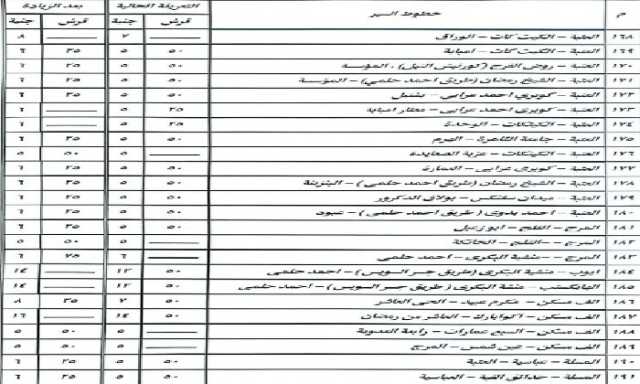 م خطوط السير التعريفة الحالية بعد الزيادة
قرش جنية قرش جنية
١٦٨ العتبة - الكيت كات - الوراق ـــــ ٧ ـــــ ٨
١٦٩ العتبة - الكيت كات - امبابة ٥٠ ٥ ٢٥ ٦
١٧٠ العتبة - روض الفرج (كورنيش النيل) - المؤسسة ٥٠ ٥ ٢٥ ٦
١٧١ العتبة - الشيخ رمضان (طريق احمد حلمي) - المؤسسة ٥٠ ٥ ٢٥ ٦
١٧٢ العتبة - كوبري احمد عرابي - بشتيل ٥٠ ٥ ٢٥ ٦
١٧٣ العتبة - كوبري احمد عرابي - مطار امبابة ٢٥ ٥ ـــــ ٦
١٧٤ العتبة - الكيتكات - الوحدة ٢٥ ٥ ـــــ ٦
١٧٥ العتبة - جامعة القاهرة - الهرم ٥٠ ٥ ٢٥ ٦
١٧٦ العتبة - الكيتكات - عزبة الصعايدة ـــــ ٥ ٥٠ ٥
١٧٧ العتبة - كوبري عرابي - ٥٠ ٥ ٢٥ ٦
١٧٨ العتبة - الشيخ رمضان (طريق احمد حلمي) - ٥٠ ٥ ٢٥ ٦
١٧٩ العتبة - ميدان سفنكس - بولاق الدكرور ٥٠ ٥ ٢٥ ٦
١٨٠ العتبة - احمد بدوي (طريق احمد حلمي) - عبود ٥٠ ٥ ٢٥ ٦
١٨١ المرج - القلج - ابوزعبل ٥٠ ٥ ٢٥ ٦
١٨٢ المرج -- القلج - الخانكة ـــــ ٥ ٥٠ ٥
١٨٣ المرج -- منشية البكري - احمد حلمي ـــــ ٦ ٧٥ ٦
١٨٤ ايوب - منشية البكري (طريق جسر السويس) - احمد حلمي ٥٠ ١٢ ـــــ ١٤
١٨٥ - منشية البكري (طريق جسر السويس) - احمد حلمي ٥٠ ١٢ ـــــ ١٤
١٨٦ الف مسكن - مكرم عبيد - الحي العاشر ٥٠ ٧ ٢٥ ٨
١٨٧ الف مسكن - - العاشر من رمضان ٥٠ ١٤ ـــــ ١٦
١٨٨ الف مسكن - السبع عمارات - رابعة العدوية ـــــ ٥ ٥٠ ٥
١٨٩ الف مسكن - عين شمس - المرج ـــــ ٥ ٥٠ ٥
١٩٠ المسلة - عباسية - العتبة ٥٠ ٥ ٢٥ ٦
١٩١ المسلة - حدائق القبة - العباسية ٥٠ ٥ ٢٥ ٦